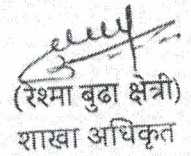 (रेश्मा बुढा क्षेत्री)
शाखा अधिकृत